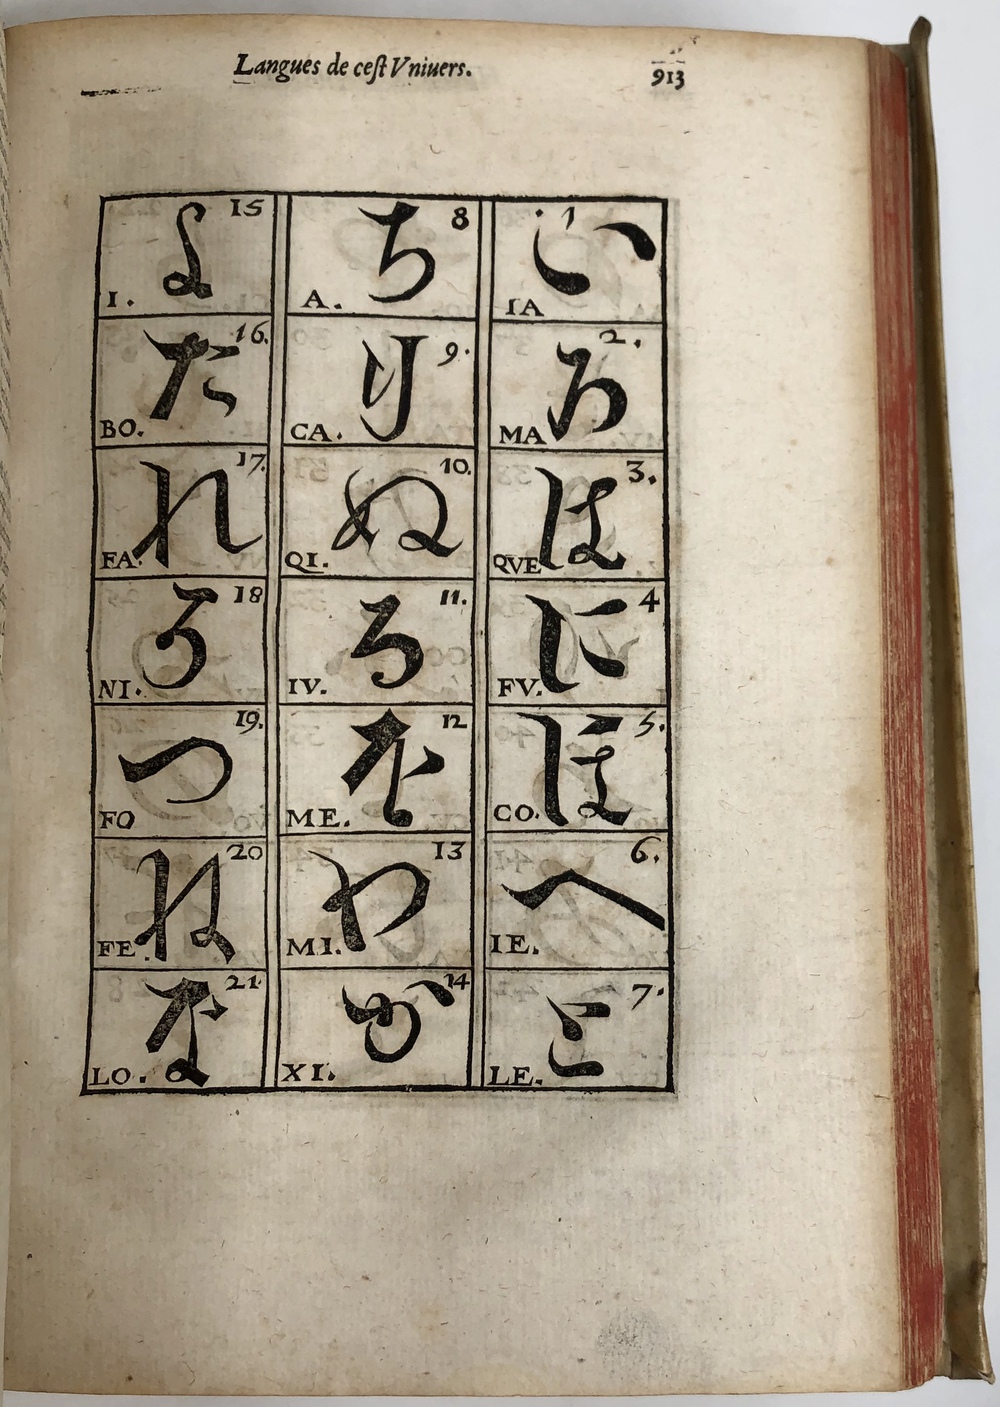 Langues de cest Vniuers.
913
1 い IA
2. ろ MA
3. は QVE
4 に FV.
5. ほ CO.
6. へ IE.
7. と LE.
8 ち A.
9. り CA.
10. ぬ QI.
11. る IV.
12 を ME.
13 わ MI.
14 か XI.
15 よ I.
16. た BO.
17. れ FA.
18 そ NI.
19. つ FO
20 ね FE.
21. な LO.